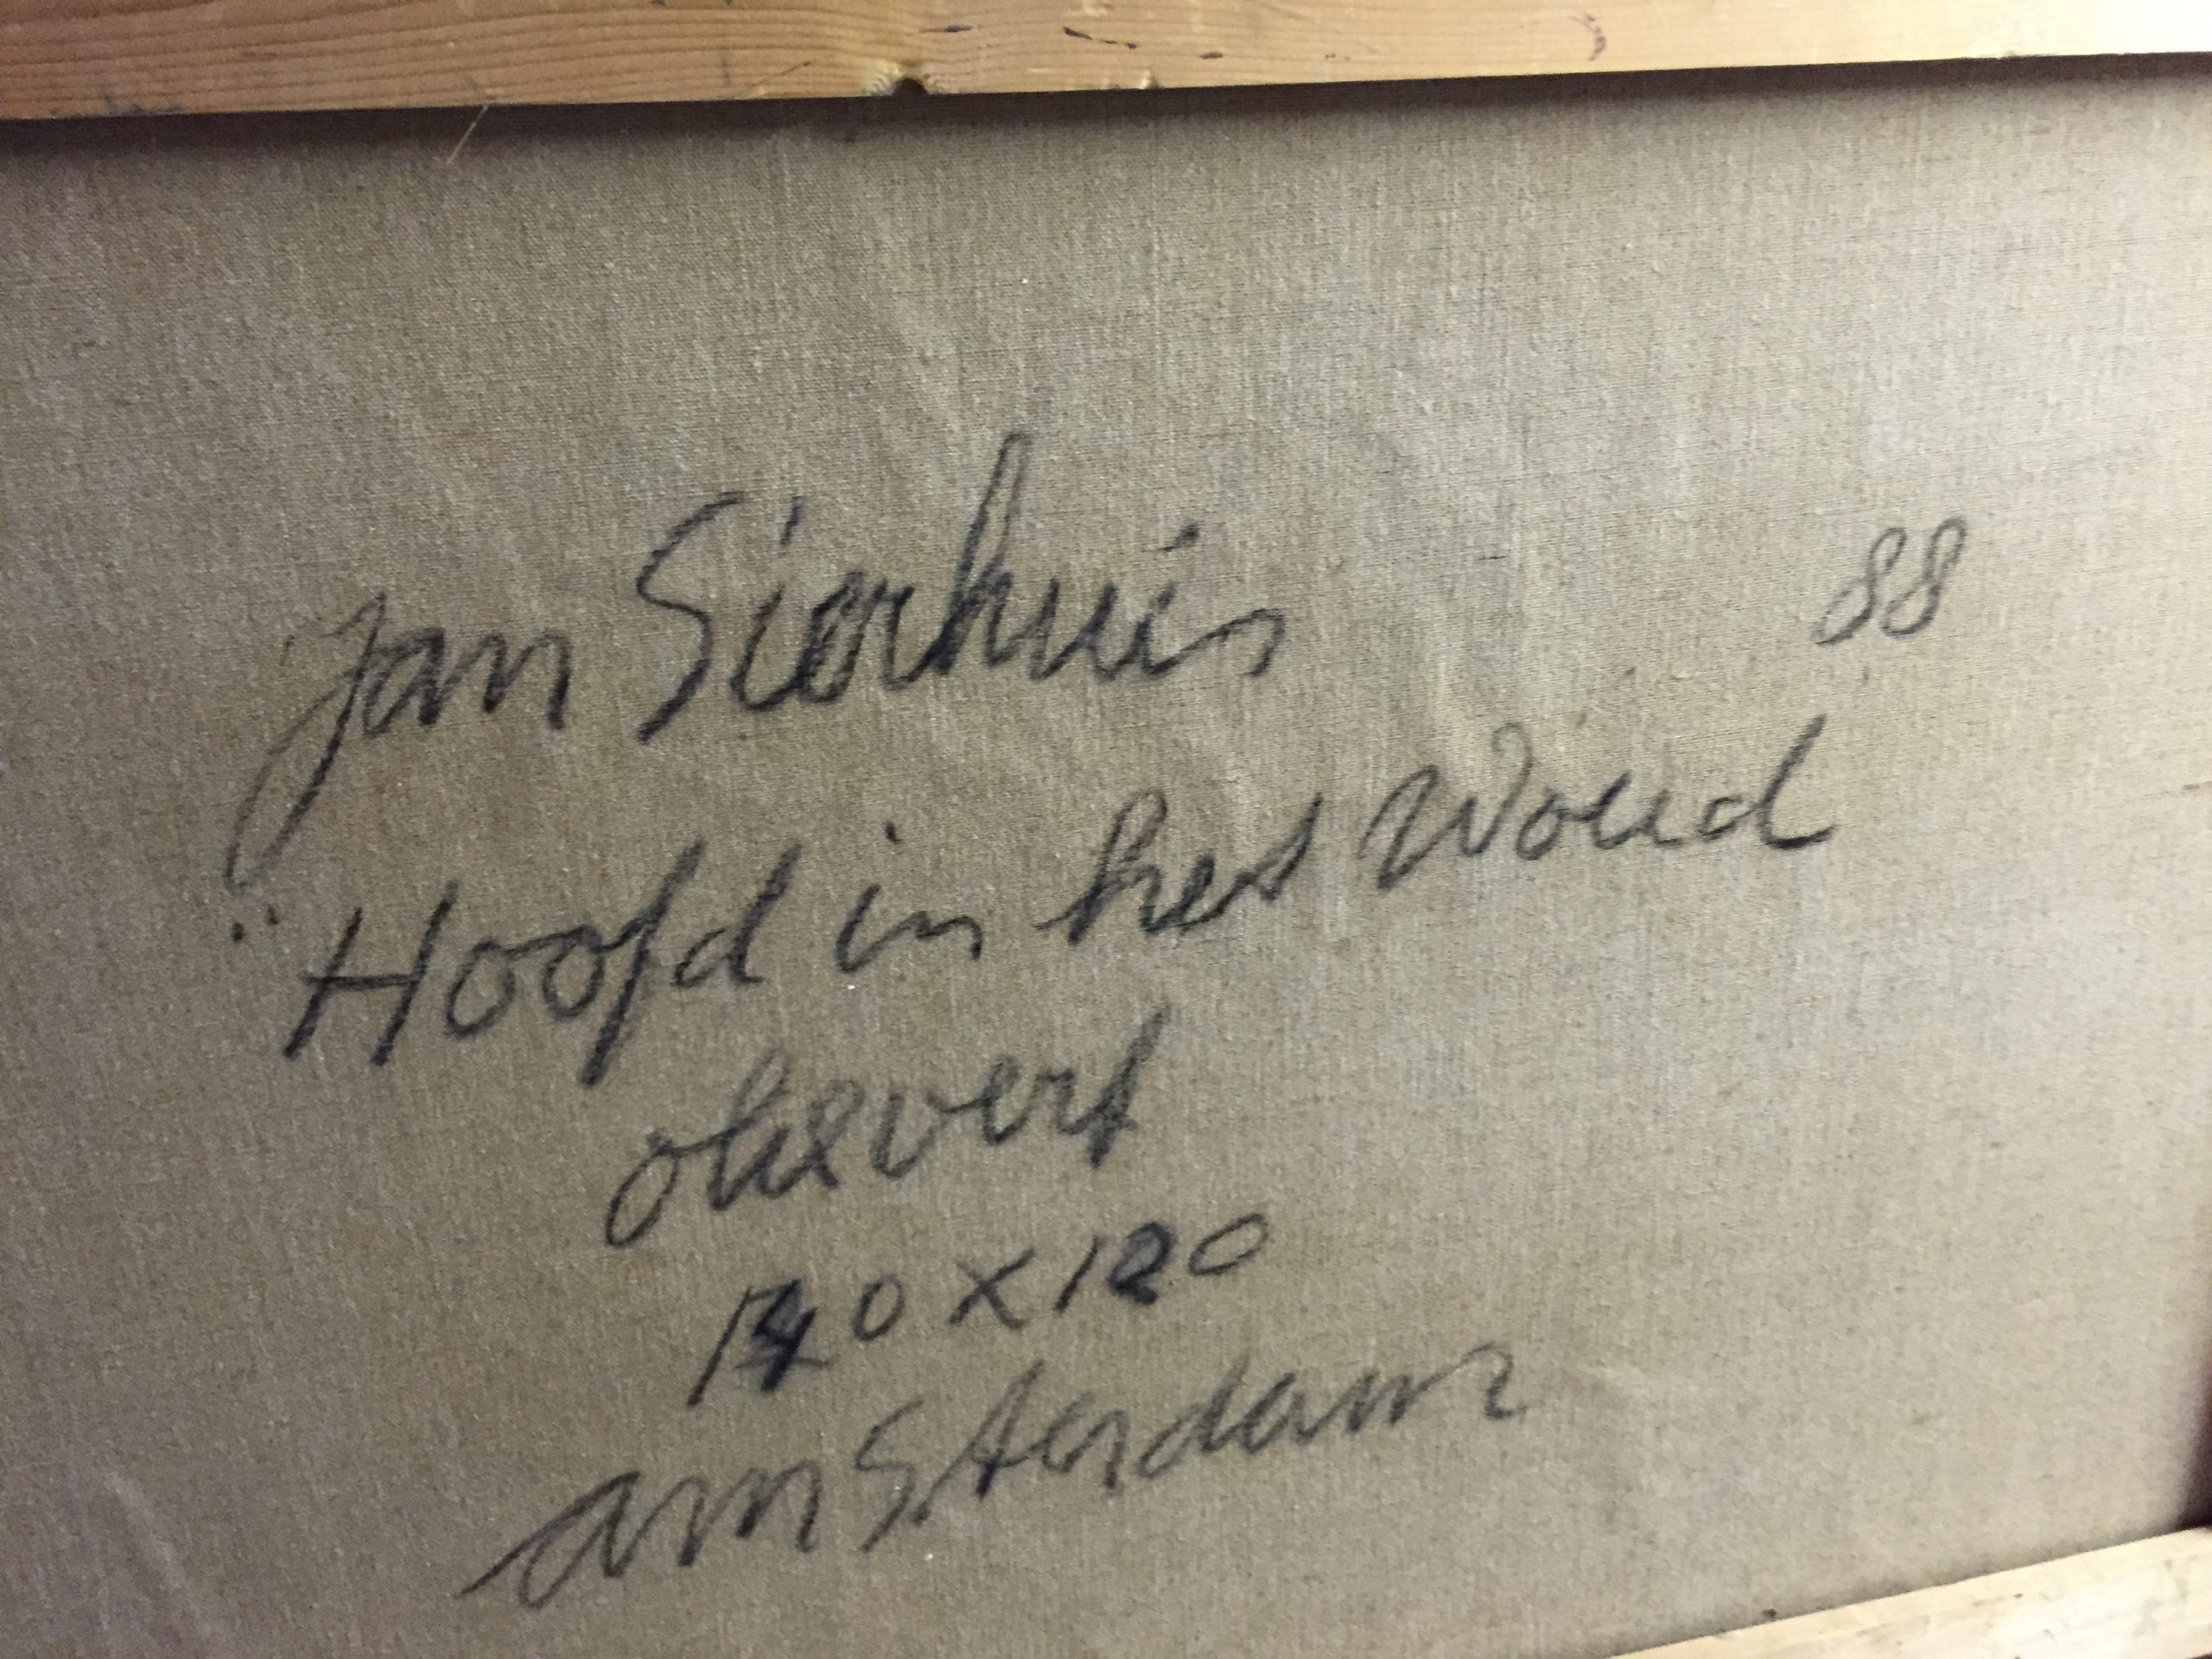 Jan Sierhuis 88
"Hoofd in het Woud
olieverf
140 x 120
amsterdam